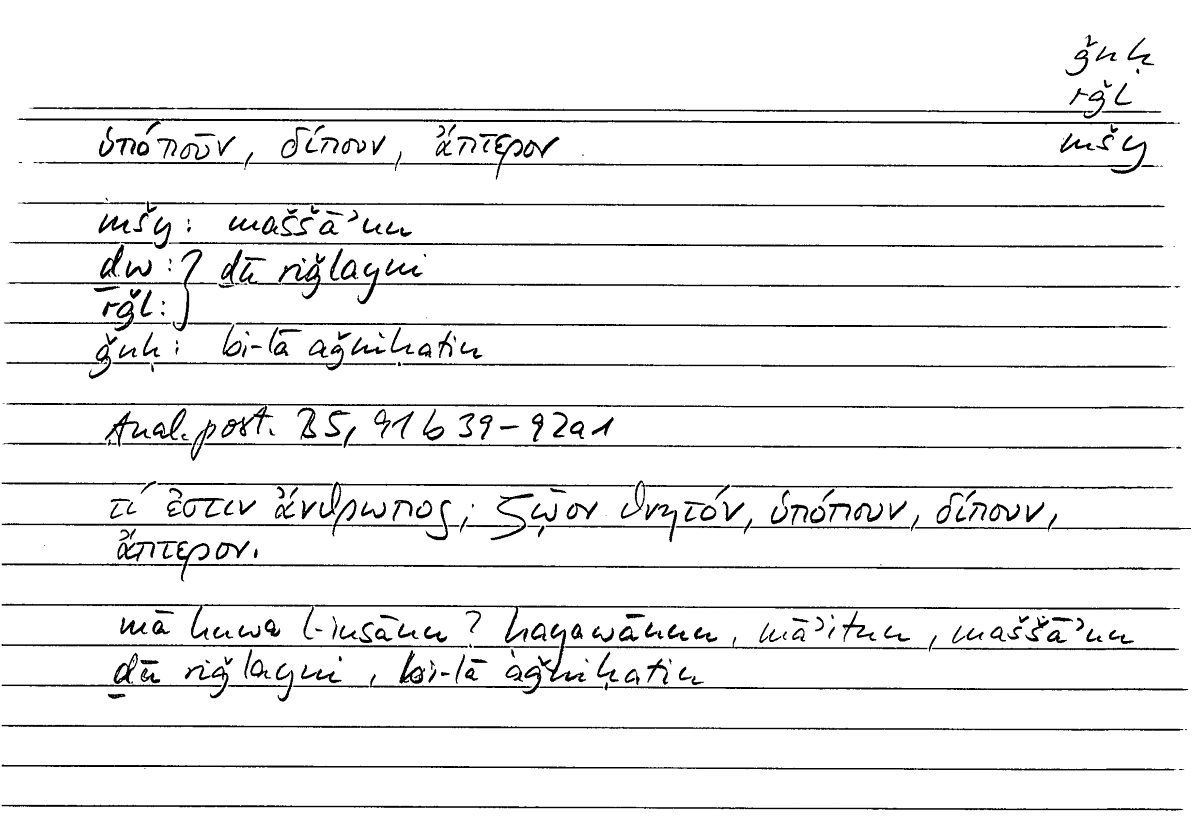 ǧnḥ
rǧl
mšy
ὑπόπουν, δίπουν, ἄπτερον
mšy: maššāʾun
ḏw:
rǧl: } ḏū riǧlayni
ǧnḥ: bi-lā aǧniḥatin
Anal. post. B5, 91b39-92a1
τί ἐστιν ἄνθρωπος; ζῷον θνητόν, ὑπόπουν, δίπουν,
ἄπτερον.
mā huwa l-insānu? hayawānun, māʾitun, maššāʾun
ḏū riǧlayni, bi-lā aǧniḥatin